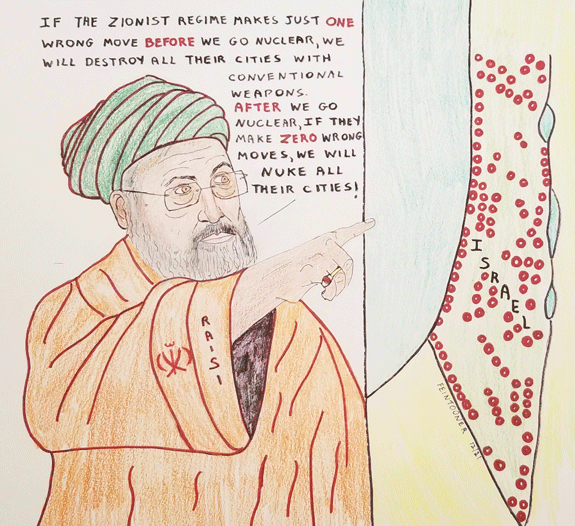 IF THE ZIONIST REGIME MAKES JUST ONE
WRONG MOVE BEFORE WE GO NUCLEAR, WE
WILL DESTROY ALL THEIR CITIES WITH
CONVENTIONAL
WEAPONS.
AFTER WE GO
NUCLEAR, IF THEY
MAKE ZERO WRONG
MOVES, WE WILL
NUKE ALL
THEIR CITIES!
ISRAEL
RAISI
FEINTOONER